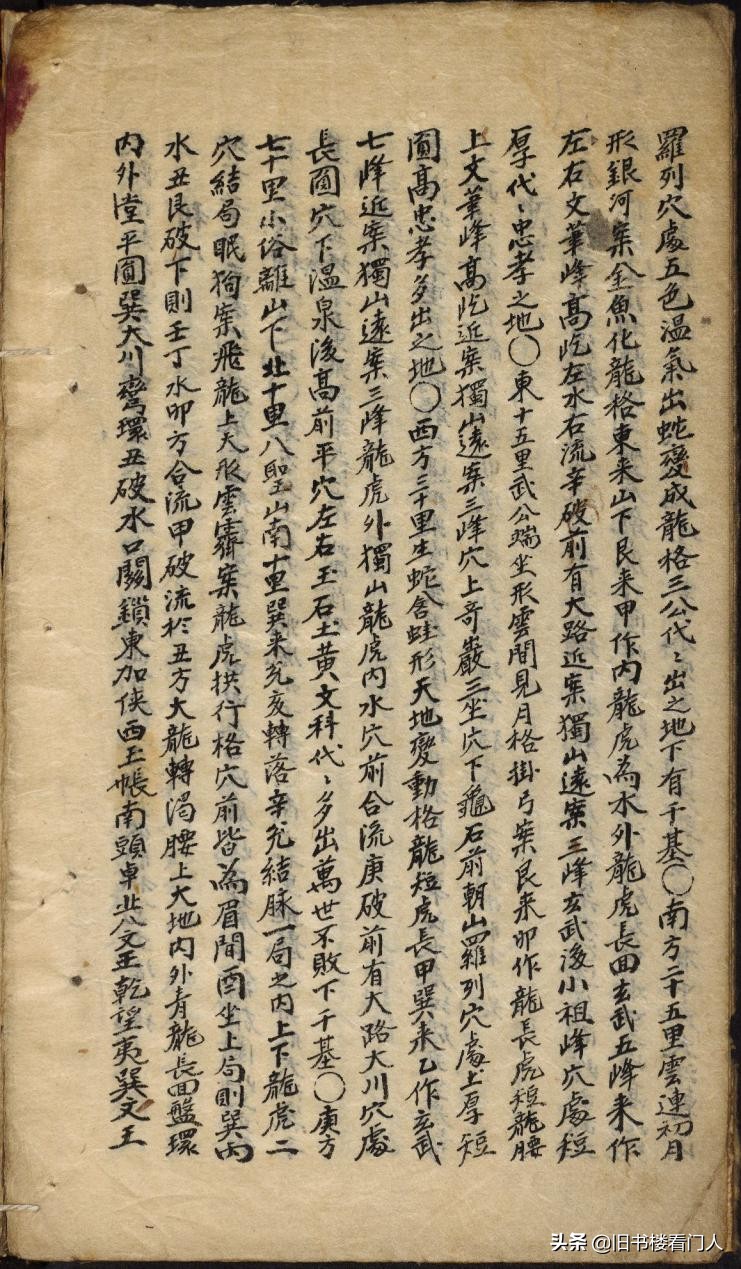 羅列穴處五色温氣出蛇變成龍格三公代〻出之地下有千基〇南方二十五里雲連初月
形銀河案金魚化龍格東来山下艮来甲作内龍虎為水外龍虎長回玄武五峰来作
左右文筆峰高屹左水右流辛破前有大路近案獨山遠案三峰玄武後小祖峰穴處短
厚代〻忠孝之地〇東十五里武公端坐形雲間見月格掛弓案艮来卯作龍長虎短龍腰
上文筆峰高屹近案獨山遠案三峰穴上奇巖三坐穴下龜石前朝山羅列穴處上厚短
圓高忠孝多出之地〇西方三十里生蛇含蛙形天地變動格龍短虎長甲巽来乙作玄武
七峰近案獨山遠案三峰龍虎外獨山龍虎内水穴前合流庚破前有大路大川穴處
長圓穴下温泉後高前平穴左右玉石土黄文科代〻多出萬世不敗下千基〇庚方
七十里小俗離山下北十里八聖山南十里巽来兌亥轉落辛兌結脉一局之内上下龍虎二
穴結局眠狗案飛龍上天形雲霽案龍虎拱行格穴前皆為眉間酉坐上局則巽丙
水丑艮破下則壬丁水卯方合流甲破流於丑方大龍轉渴腰上大地内外青龍長回盤環
内外堂平圓巽大川彎環丑破水口關鎖東加俠西玉帳南頭卓北八文王乾望夷巽文王
头条 @旧书楼看门人